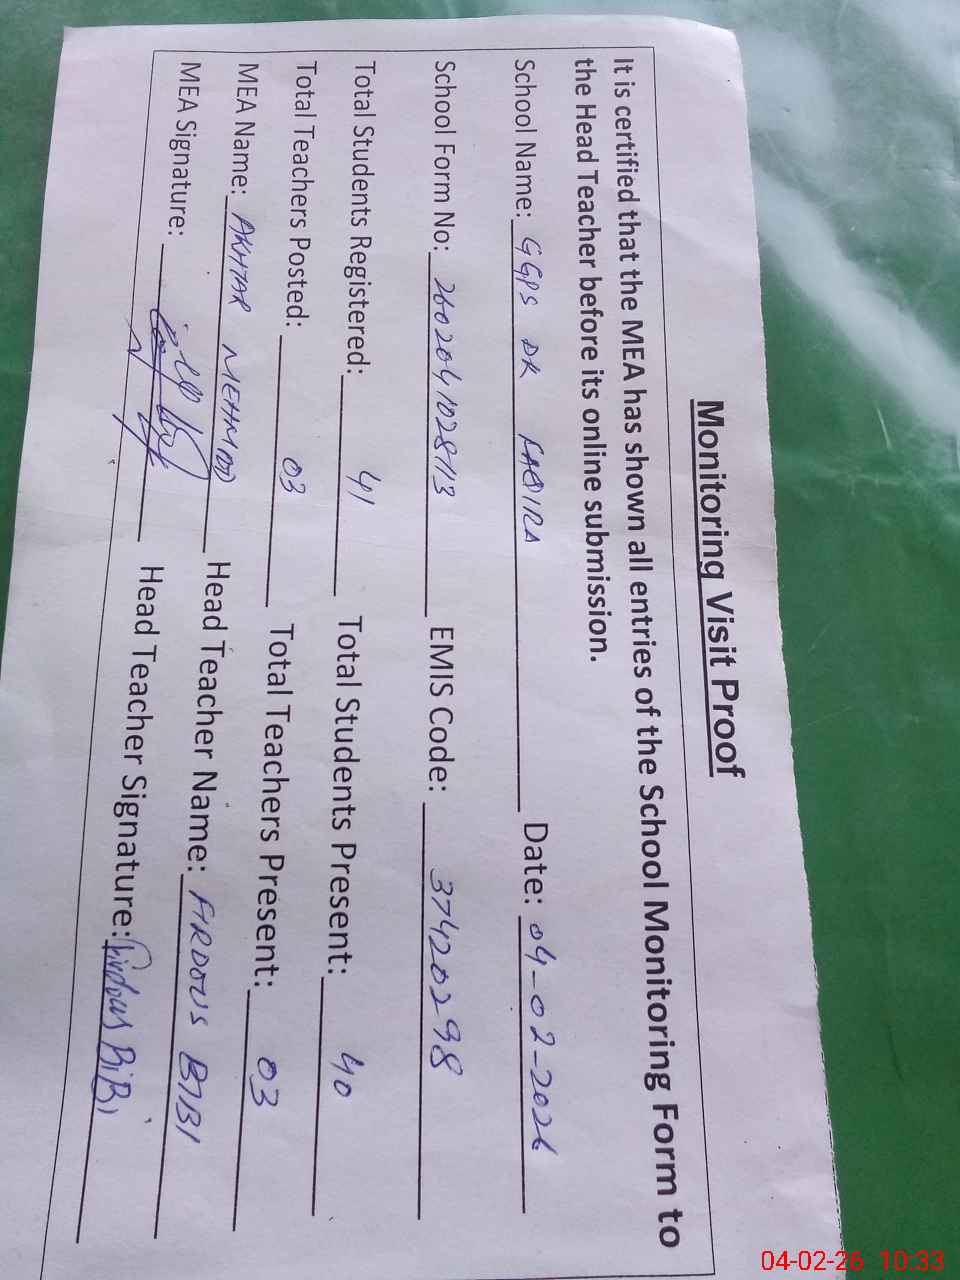 Monitoring Visit Proof
It is certified that the MEA has shown all entries of the School Monitoring Form to
the Head Teacher before its online submission.
School Name: GGPS DK FAQIRA Date: 04-02-2026
School Form No: EMIS Code: 37420298
Total Students Registered: 41 Total Students Present: 40
Total Teachers Posted: 03 Total Teachers Present: 03
MEA Name: AKHTAR MEHMOOD Head Teacher Name: FIRDOUS BIBI
MEA Signature: Head Teacher Signature: Firdous BiBi
04-02-26 10:33